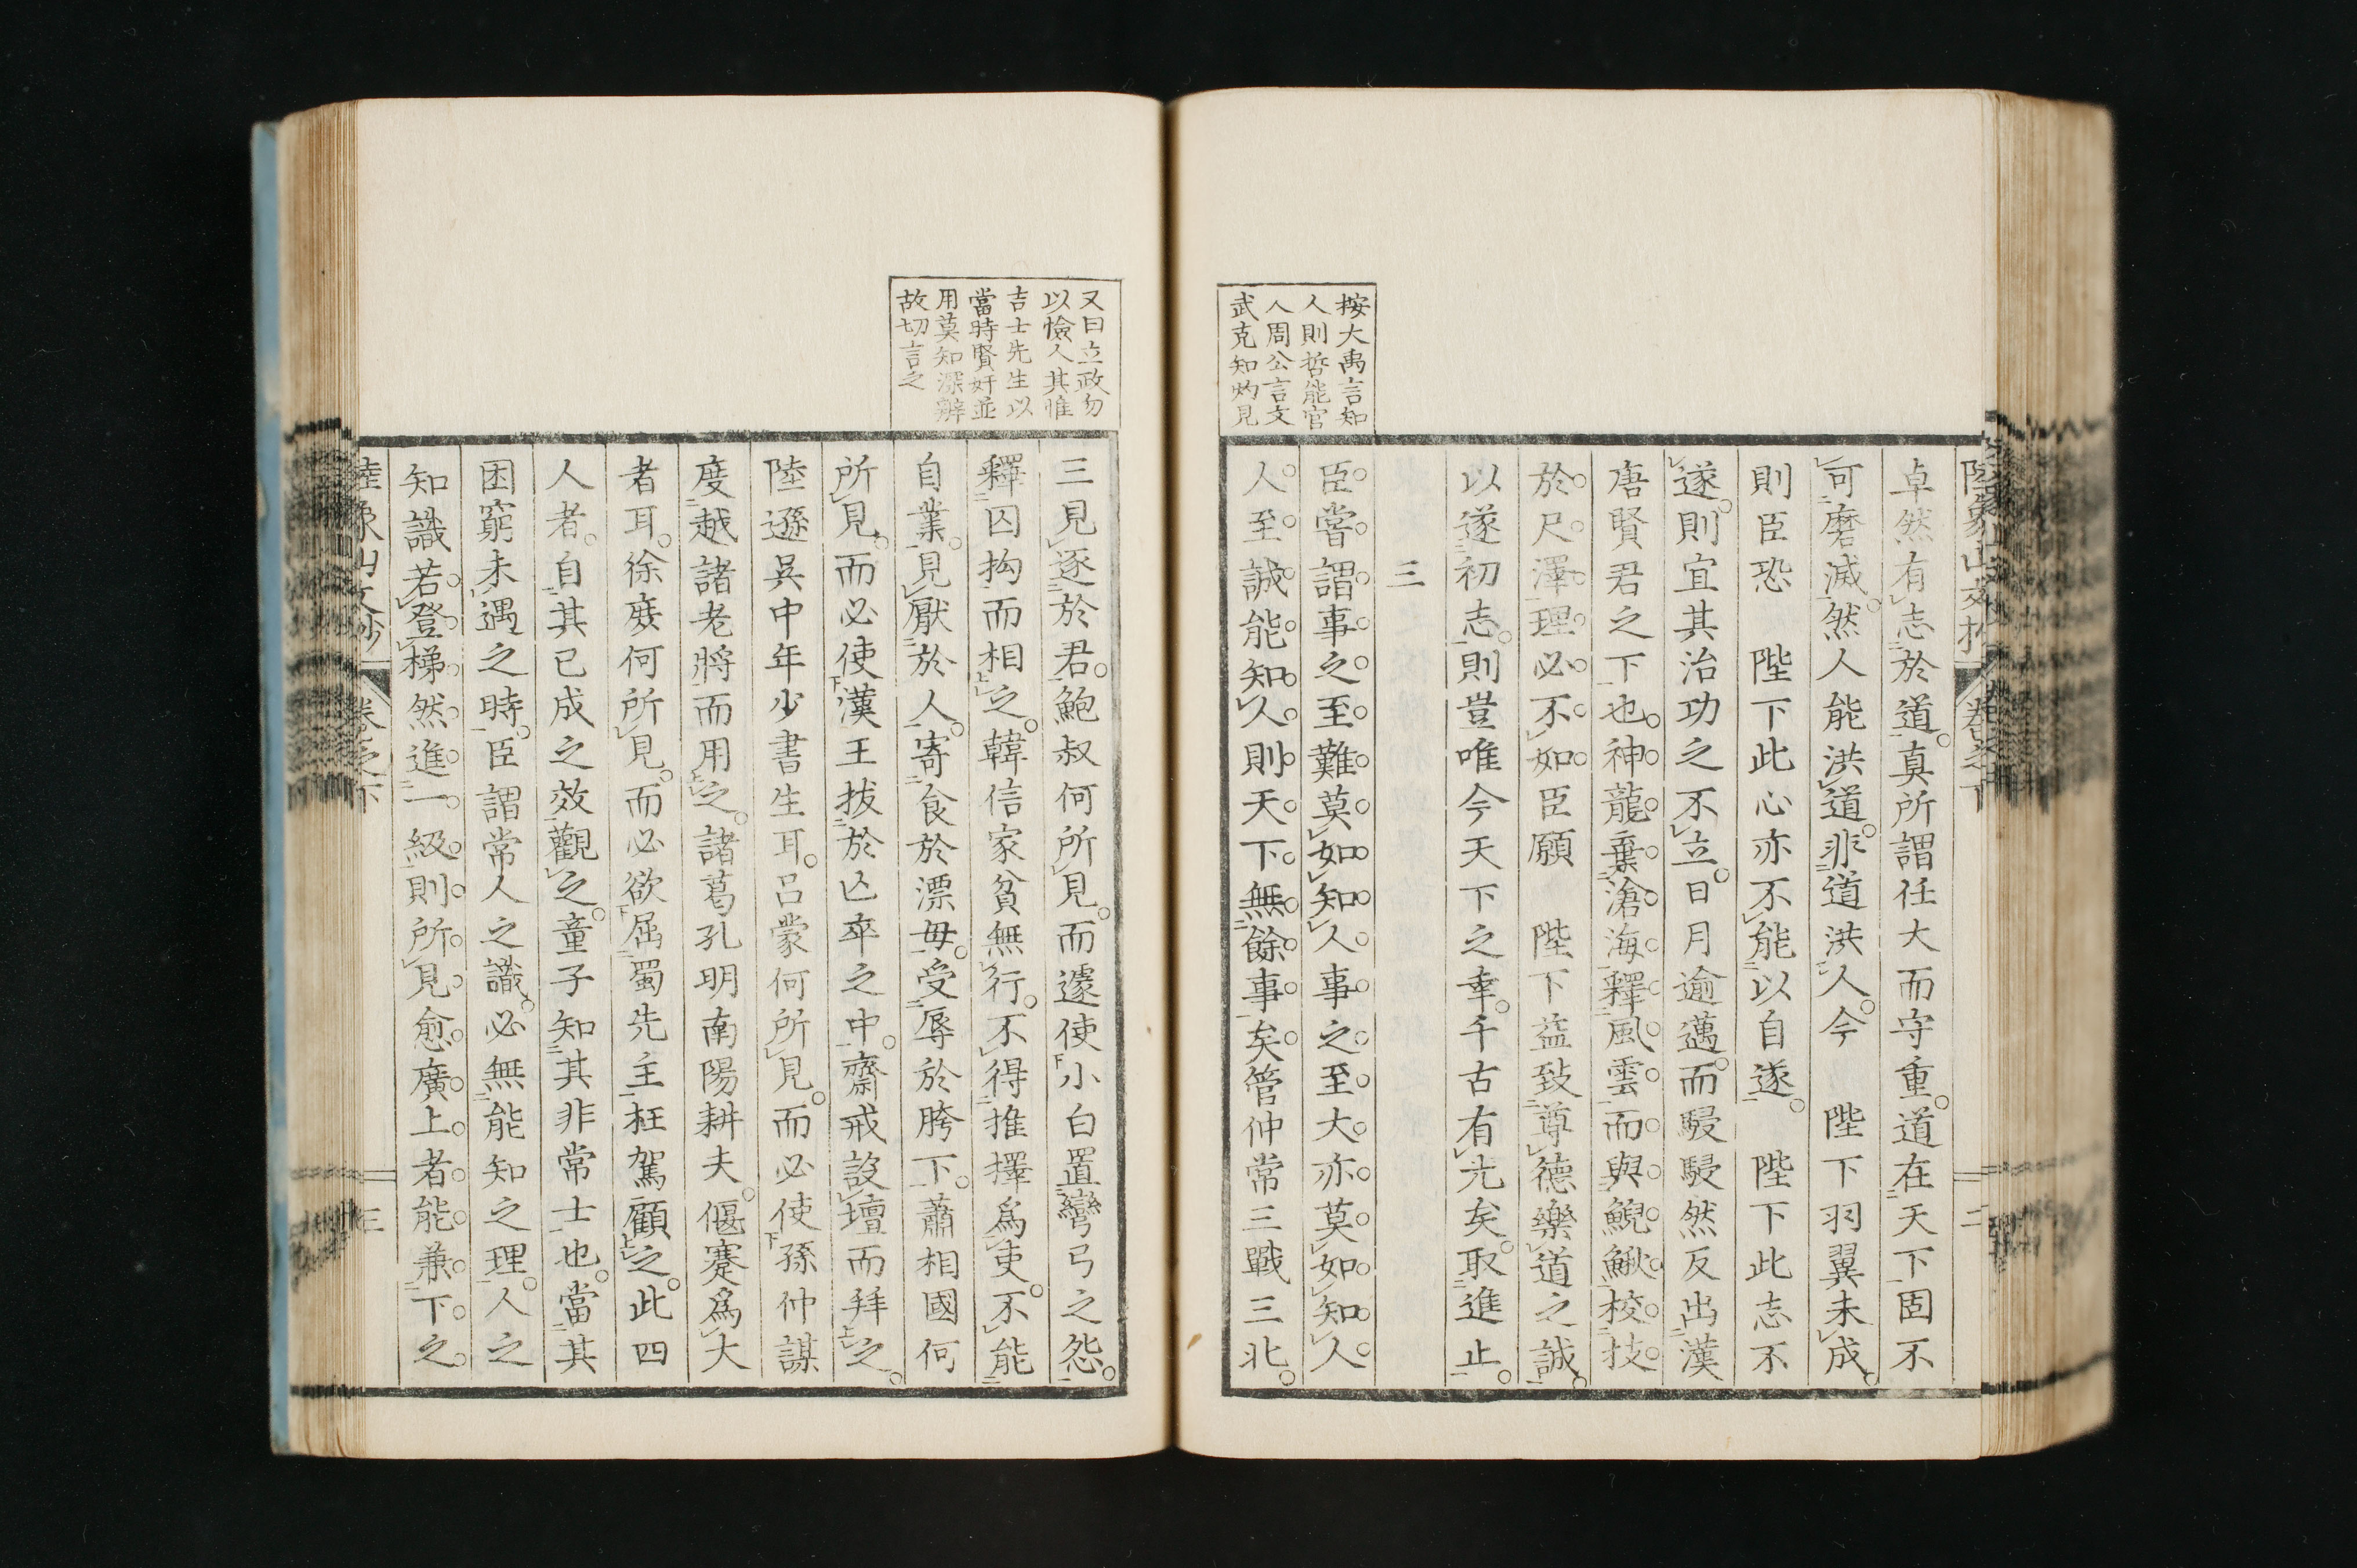 陸象山文抄 卷之下 二
卓然有志於道。真所謂任大而守重。道在天下固不
可磨滅。然人能洪道。非道洪人。今 陛下羽翼未成。
則臣恐 陛下此心亦不能以自遂。 陛下此志不
遂。則宜其治功之不立。日月逾邁。而駸駸然反出漢
唐賢君之下也。神龍棄滄海。釋風雲。而與鯢鰍校技
於尺澤。理必不如。臣願 陛下益致尊德樂道之誠。
以遂初志。則豈唯今天下之幸。千古有光矣。取進止。
三
臣嘗謂事之至難。莫如知人。事之至大。亦莫如知人。
人至誠能知人。則天下無餘事矣。管仲常三戰三北。
按大禹言知
人則哲能官
人周公言文
武克知灼見
三見逐於君。鮑叔何所見。而遽使小白置彎弓之怨。
釋囚拘而相之。韓信家貧無行。不得推擇爲吏。不能
自業。見厭於人。寄食於漂母。受辱於胯下。蕭相國何
所見。而必使漢王拔於亡卒之中。齋戒設壇而拜之。
陸遜吳中年少書生耳。呂蒙何所見。而必使孫仲謀
度越諸老將而用之。諸葛孔明南陽耕夫。偃蹇爲大
者耳。徐庶何所見。而必欲屈蜀先主枉駕顧之。此四
人者。自其已成之效觀之。童子知其非常士也。當其
困窮未遇之時。臣謂常人之識。必無能知之理。人之
知識若登梯然。進一級。則所見愈廣。上者能兼下之。
又曰立政勿
以憸人其惟
吉士先生以
當時賢奸並
用莫知深辨
故切言之
陸象山文抄 卷之下 三